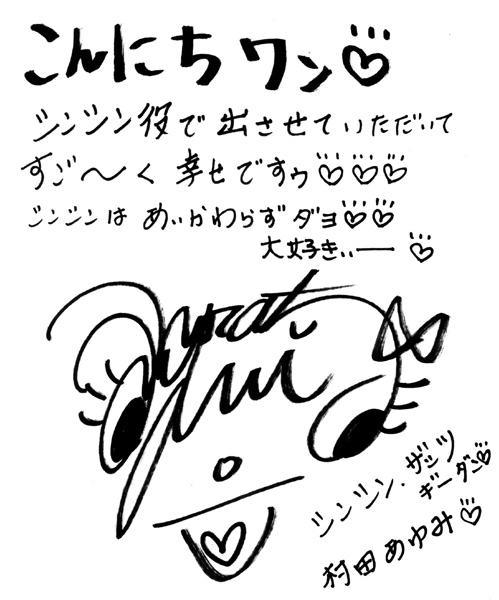 こんにちワン♡
シンシン役で出させていただいて
すご〜く幸せですゥ♡♡♡
ジンジンはあいかわらずダヨ♡♡
大好きぃー♡
シンシン・ザッツ
ギーダン♡
村田あゆみ♡